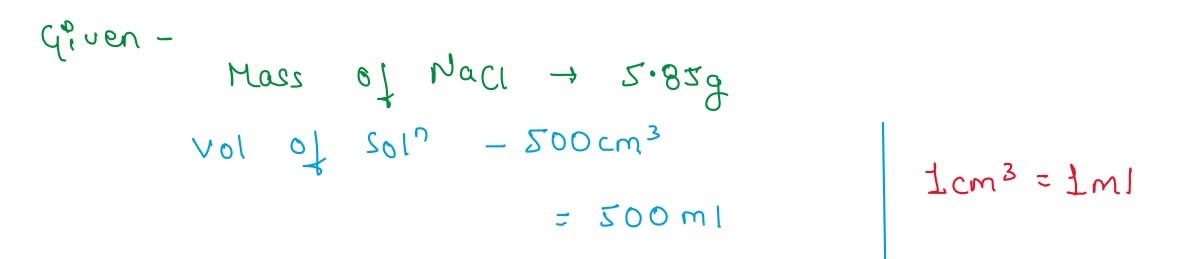 Given -
Mass of NaCl → 5.85g
Vol of Solⁿ - 500 cm³
1 cm³ = 1 ml
= 500 ml